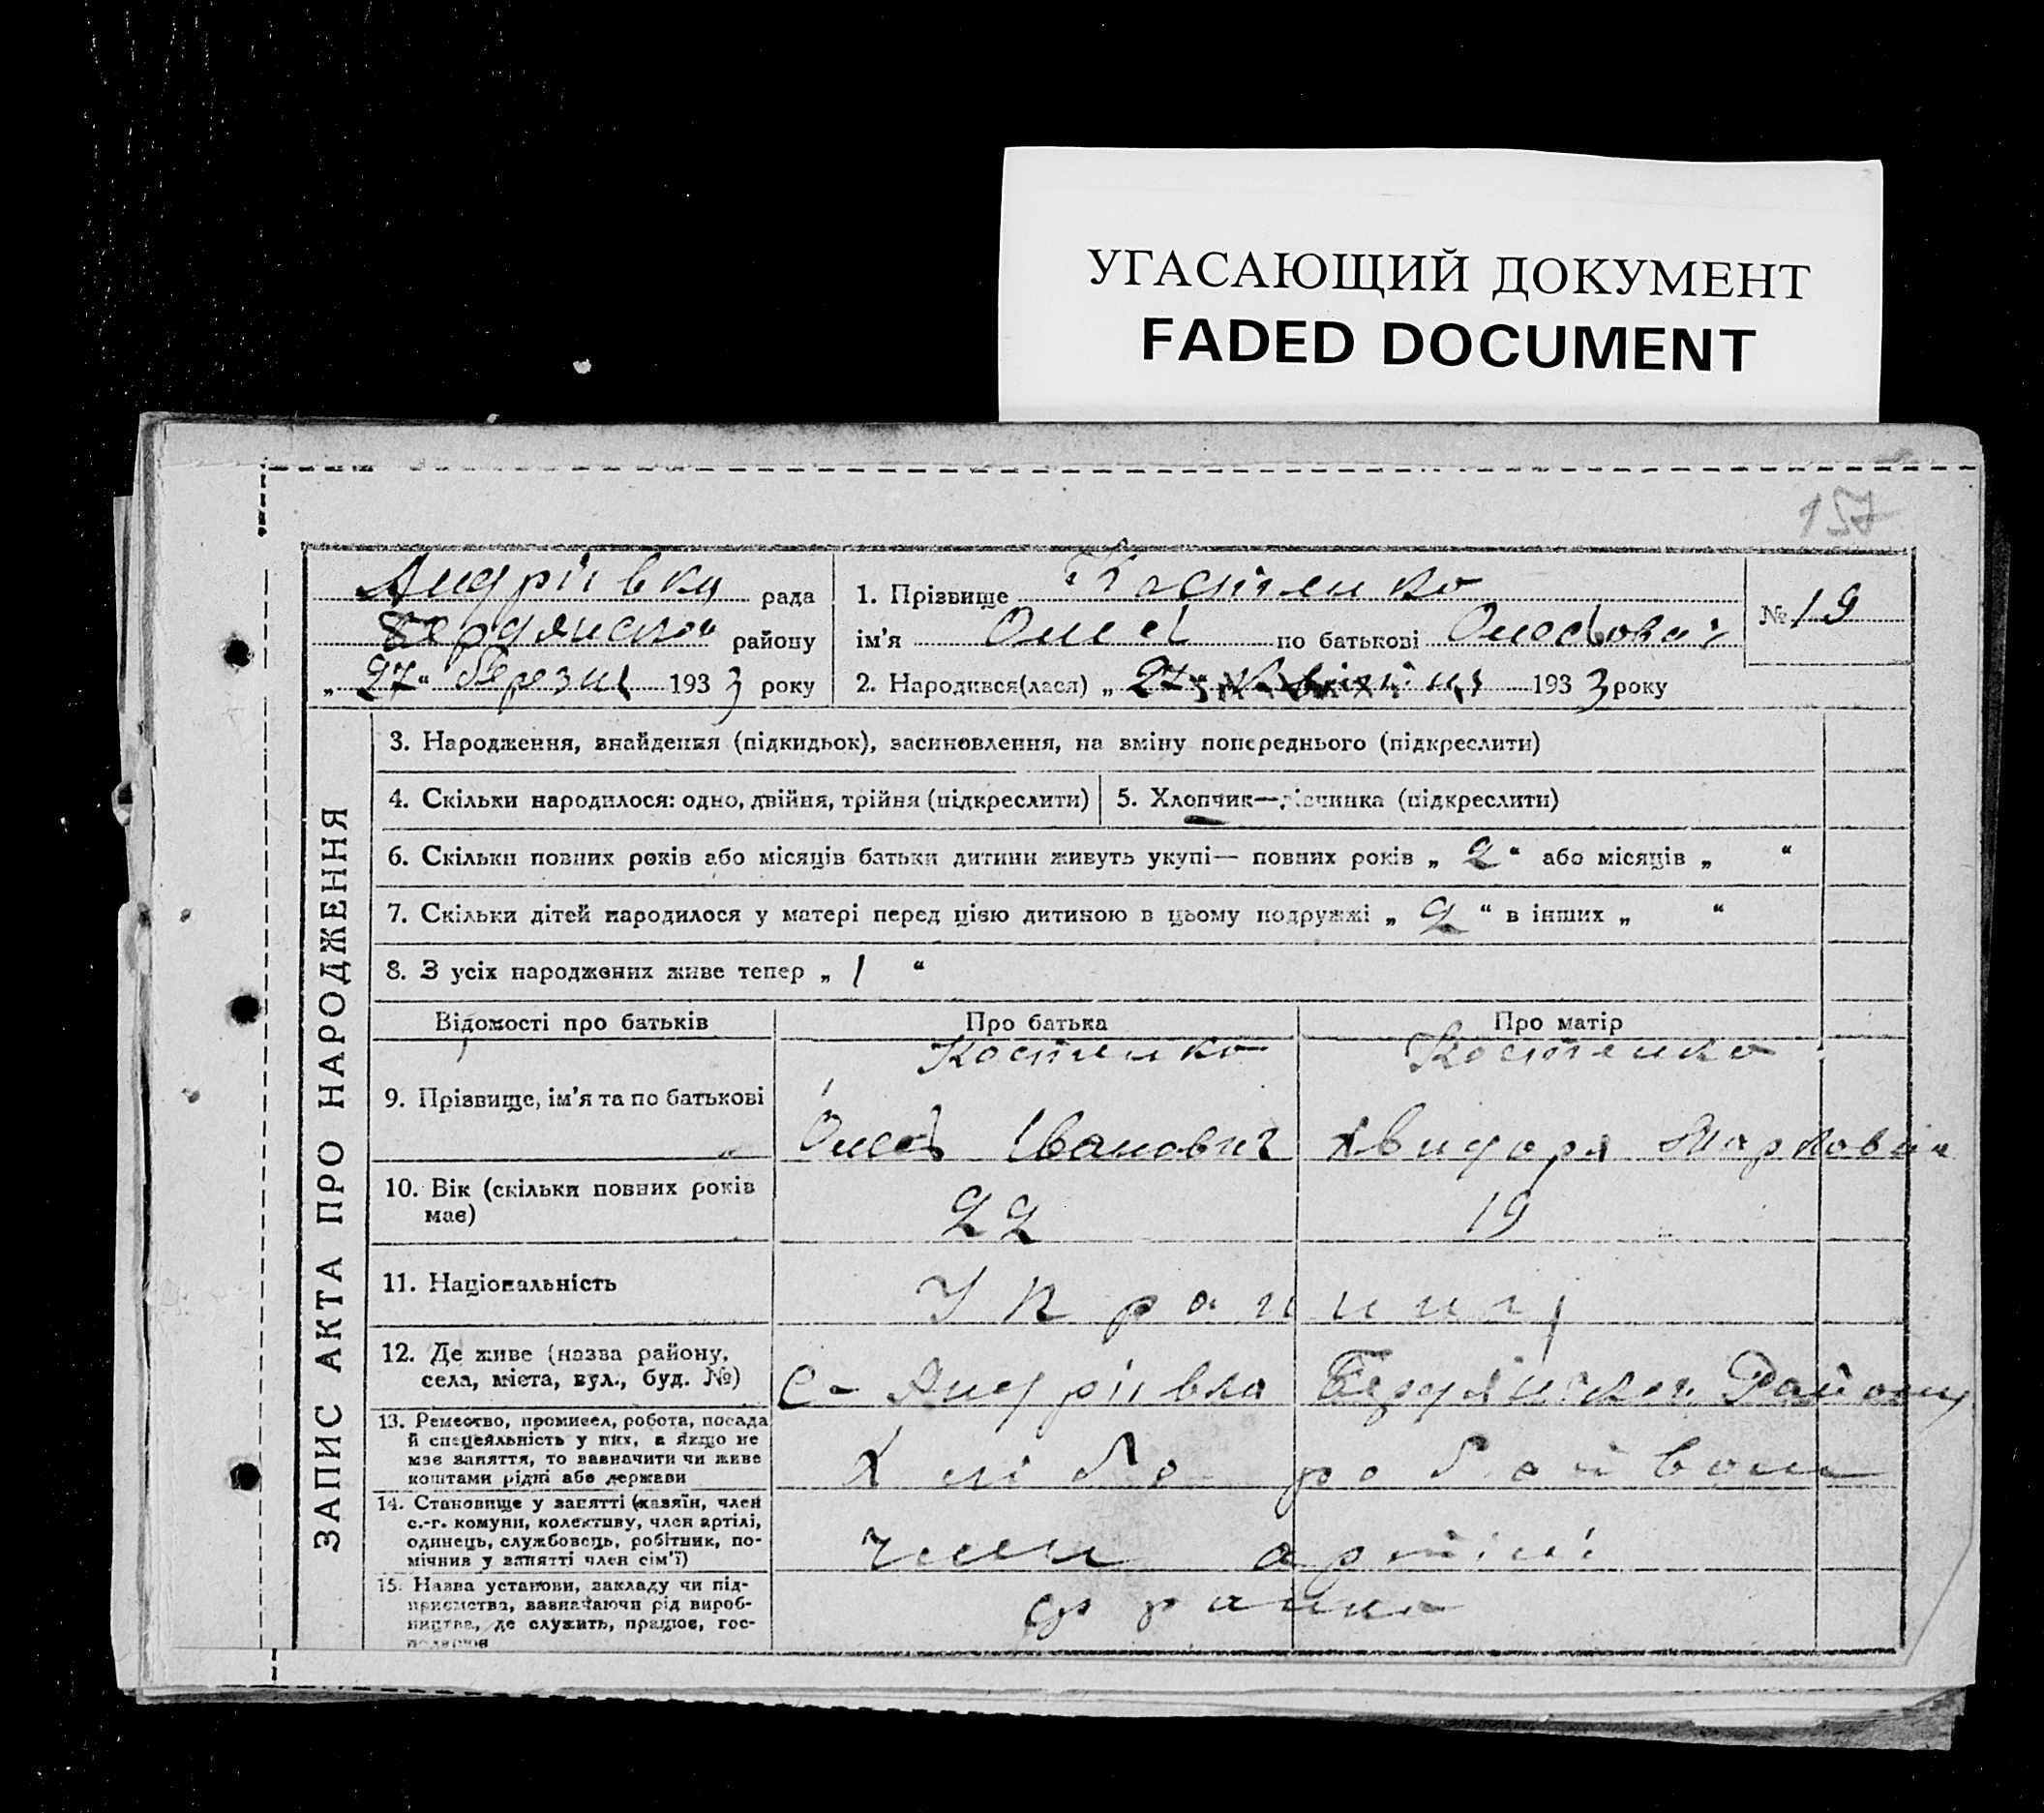 УГАСАЮЩИЙ ДОКУМЕНТ
FADED DOCUMENT
157
Андрііvка рада
Бердянсько району
„27“ березня 1933 року
1. Прізвище Костенко
ім'я по батькові
2. Народився(лася) „27“ 1933 року
№ 19
ЗАПИС АКТА ПРО НАРОДЖЕННЯ
3. Народження, знайдення (підкидьок), засиновлення, на зміну попереднього (підкреслити)
4. Скільки народилося: одно, двійня, трійня (підкреслити)
5. Хлопчик—дівчинка (підкреслити)
6. Скільки повних років або місяців батьки дитини живуть укупі— повних років „ 2 “ або місяців „ “
7. Скільки дітей народилося у матері перед цією дитиною в цьому подружжі „ 2 “ в інших „ “
8. З усіх народжених живе тепер „ 1 “
Відомості про батьків
Про батька
Про матір
9. Прізвище, ім'я та по батькові
Костенко
Іванович
Костенко
Марковна
10. Вік (скільки повних років має)
22
19
11. Національність
Украинці
12. Де живе (назва району, села, міста, вул., буд. №)
С- Андріївка Бердянськ. Району
13. Ремество, промисел, робота, посада й спеціяльність у них, а якщо не має заняття, то зазначити чи живе коштами рідні або держави
Хліборобством
14. Становище у занятті (хазяїн, член с.-г. комуни, колективу, член артілі, одинець, службовець, робітник, помічник у занятті член сім'ї)
член артілі
15. Назва установи, закладу чи підприємства, зазначаючи рід виробництва, де служить, працює, господарює